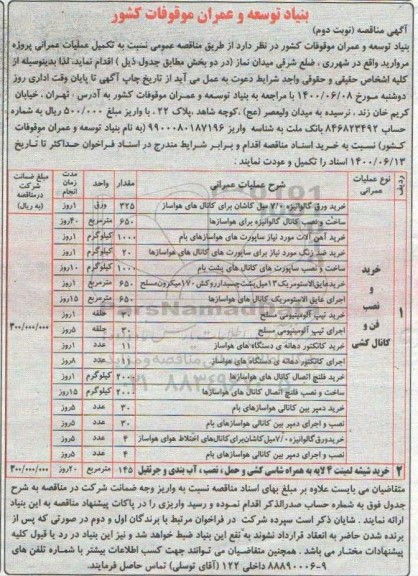 بنیاد توسعه و عمران موقوفات کشور
آگهی مناقصه (نوبت دوم)
بنیاد توسعه و عمران موقوفات کشور در نظر دارد از طریق مناقصه عمومی نسبت به تکمیل عملیات عمرانی پروژه
مروارید واقع در شهرری ، ضلع شرقی میدان نماز (در دو بخش مطابق جدول ذیل ) اقدام نماید، لذا بدینوسیله از
کلیه اشخاص حقیقی و حقوقی واجد شرایط دعوت به عمل می آید از تاریخ چاپ آگهی تا پایان وقت اداری روز
دوشنبه مورخ ۱۴۰۰/۰۶/۰۸ با مراجعه به بنیاد توسعه و عمران موقوفات کشور به آدرس : تهران . خیابان
کریم خان زند . نرسیده به میدان ولیعصر (عج) .کوچه شاهد .پلاک ۲۲. با واریز مبلغ ۵۰۰/۰۰۰ ریال به شماره
حساب ۸۴۶۸۲۳۴۹۲ بانک ملت به شناسه واریز ۹۹۰۰۰۸۰۱۸۷۱۹۶ (به نام بنیاد توسعه و عمران موقوفات
کشور) نسبت به خرید اسناد مناقصه اقدام و برابر شرایط مندرج در اسناد فراخوان حداکثر تا تاریخ
۱۴۰۰/۰۶/۱۳ اسناد را تکمیل و عودت نمایند .
ردیف نوع عملیات عمرانی شرح عملیات عمرانی مقدار واحد مدت زمان انجام مبلغ ضمانت شرکت درمناقصه (به ریال)
۱ خرید و نصب فن و کانال کشی ۳۰۰/۰۰۰/۰۰۰
خرید ورق گالوانیزه ۷/۰ میل کاشان برای کانال های هواساز ۳۲۵ ورق ۱روز
ساخت و نصب کانال گالوانیزه برای هواسازها ۶۵۰ مترمربع ۴۰روز
خرید آهن آلات مورد نیاز ساپورت های هواسازهای بام ۱۰۰۰ کیلوگرم ۱روز
خرید ضد زنگ مورد نیاز برای ساپورت های کانال هواسازها ۲۰ کیلوگرم ۱روز
ساخت و نصب ساپورت های کانال های پشت بام ۱۰۰۰ کیلوگرم ۱۰روز
خریدعایق الاستومریک۱۳میل پشت چسبدارروکش۱۷۰میکرون مسلح ۶۵۰ مترمربع ۱روز
اجرای عایق الاستومریک کانال هواسازها ۶۵۰ مترمربع ۱۵روز
خرید تیپ آلومینیومی مسلح حلقه ۱روز
اجرای تیپ آلومینیومی مسلح ۳۰ حلقه ۵روز
خرید کانکتور دهانه ی دستگاه های هواساز ۱۱ عدد ۱روز
اجرای کانکتور دهانه ی دستگاه های هواساز عدد ۸روز
خرید فلنچ اتصال کانال های هواسازها ۲۰۰۰ کیلوگرم ۱روز
ساخت و نصب فلنچ اتصال کانال هواسازها ۲۰۰۰ کیلوگرم ۱۵روز
خرید دمپر بین کانالی هواسازهای بام ۳۰ عدد ۵روز
نصب و اجرای دمپر بین کانالی هواسازهای بام ۳۰ عدد ۵روز
خریدورق گالوانیزه۷/۰میل کاشان برای کانال‌های اختلاط هوای هواساز ۴ عدد ۵روز
نصب و اجرای دمپر بین کانالی هواسازهای بام ۴ عدد ۵روز
۲ خرید شیشه لمینت ۴ لایه به همراه شاسی کشی و حمل ، نصب ، آب بندی و جرثقیل ۱۴۵ مترمربع ۲۰روز ۳۰۰/۰۰۰/۰۰۰
متقاضیان می بایست علاوه بر مبلغ بهای اسناد مناقصه نسبت به واریز وجه ضمانت شرکت در مناقصه به شرح
جدول فوق به شماره حساب صدرالذکر اقدام نموده و رسید واریزی را در پاکات پیشنهاد مناقصه به این بنیاد
ارائه نمایند . شایان ذکر است سپرده شرکت در فراخوان مرتبط با برندگان اول و دوم در صورتی که پس از
برنده شدن حاضر به انعقاد قرارداد نشوند به نفع این بنیاد ضبط خواهد شد و نیز این بنیاد در رد یا قبول کلیه
پیشنهادات مختار می باشد . همچنین متقاضیان می توانند جهت کسب اطلاعات بیشتر با شماره تلفن های
۹-۸۸۸۹۰۰۰۶ داخلی ۱۲۲ (آقای توسلی) تماس حاصل فرمایند.